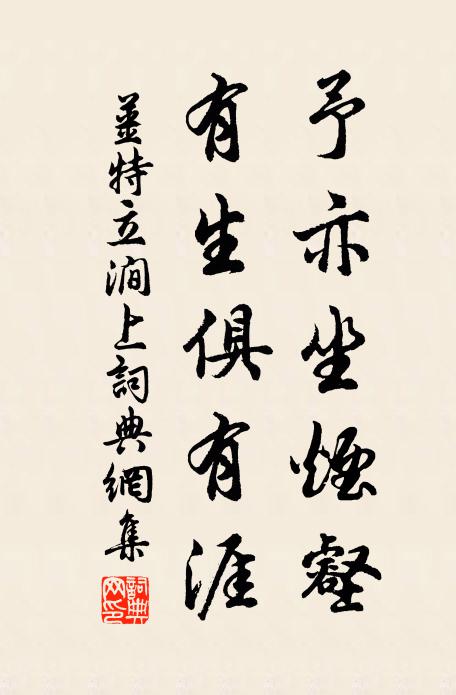 予亦坐煙壑
有生俱有涯
姜特立澗上詞典網集
詞典网印